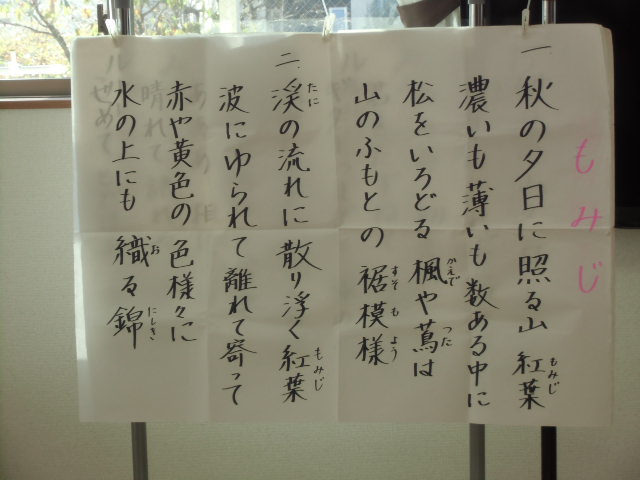 もみじ
一 秋の夕日に照る山 紅葉
もみじ
濃いも薄いも数ある中に
松をいろどる 楓や蔦は
かえで
つた
山のふもとの 裾模様
すそ も よう
二 渓の流れに 散り浮く 紅葉
たに
もみじ
波にゆられて 離れて寄って
赤や黄色の 色様々に
水の上にも 織る錦
お
にしき